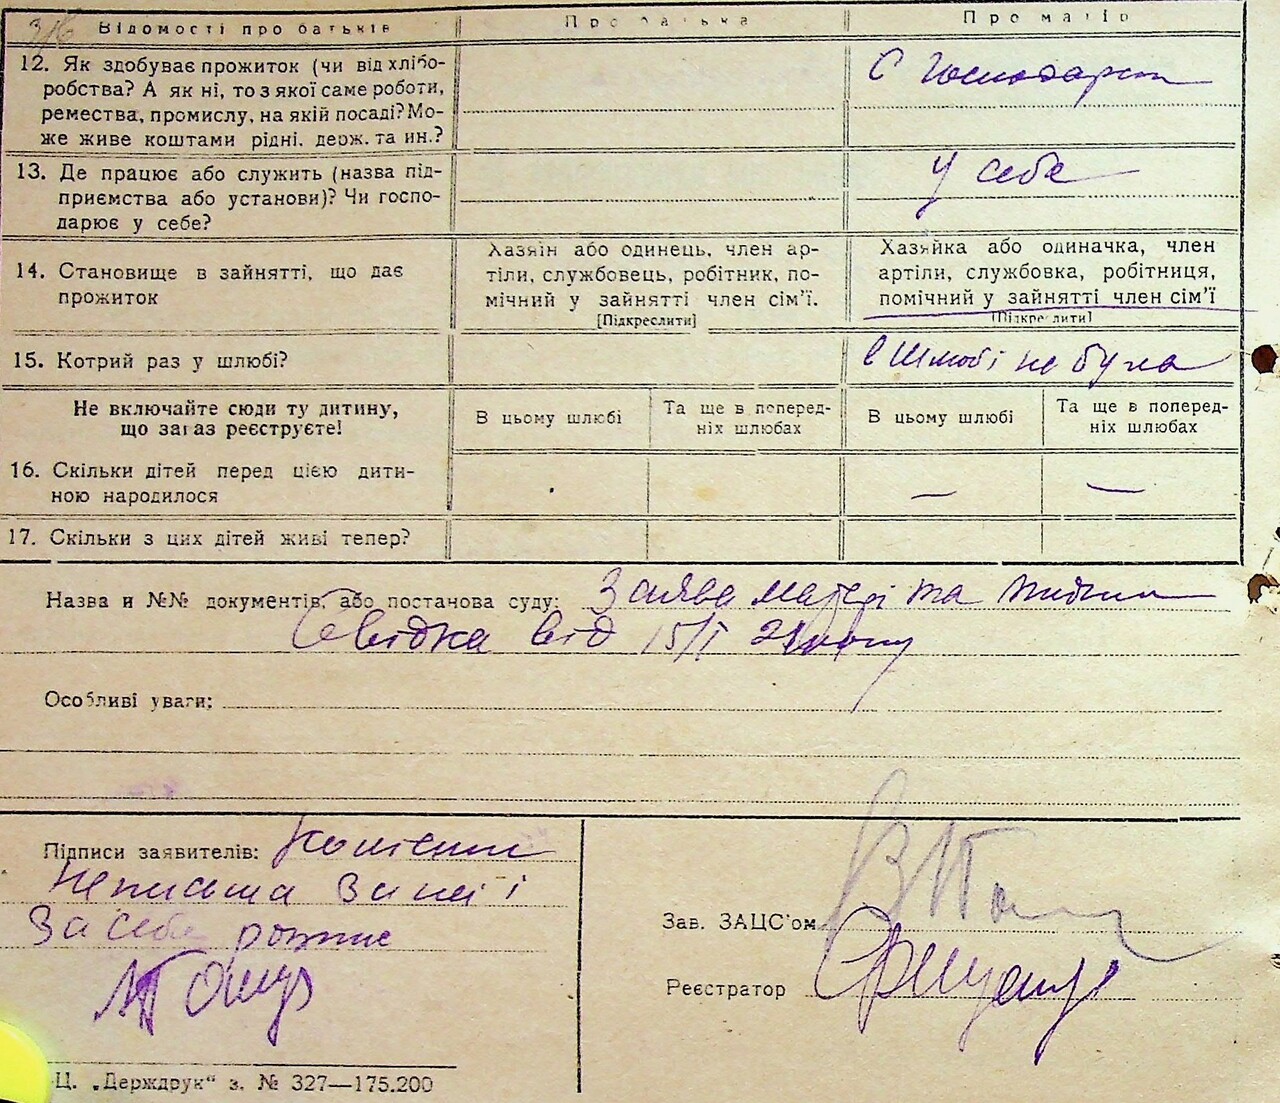 Відомості про батьків Про батька Про матір
12. Як здобуває прожиток (чи від хлібо-
робства? А як ні, то з якої саме роботи,
ремества, промислу, на якій посаді? Мо-
же живе коштами рідні. держ. та ин.?
С Господарст
13. Де працює або служить (назва під-
приємства або установи)? Чи госпо-
дарює у себе?
у себе
14. Становище в зайнятті, що дає
прожиток
Хазяїн або одинець, член ар-
тіли, службовець, робітник, по-
мічний у зайнятті член сім'ї.
[Підкреслити]
Хазяйка або одиначка, член
артіли, службовка, робітниця,
помічний у зайнятті член сім'ї
[Підкреслити]
15. Котрий раз у шлюбі?
в Шлюбі не була
Не включайте сюди ту дитину,
що зараз реєструєте!
В цьому шлюбі
Та ще в поперед-
ніх шлюбах
В цьому шлюбі
Та ще в поперед-
ніх шлюбах
16. Скільки дітей перед цією дити-
ною народилося
— —
17. Скільки з цих дітей живі тепер?
Назва и №№ документів, або постанова суду: Заява матері та
Свідка від 15/I
Особливі уваги:
Підписи заявителів:
Неписьма За неї і
За себе розпис
Зав. ЗАЦС'ом
Реєстратор
Ц. „Держдрук“ з. № 327—175.200